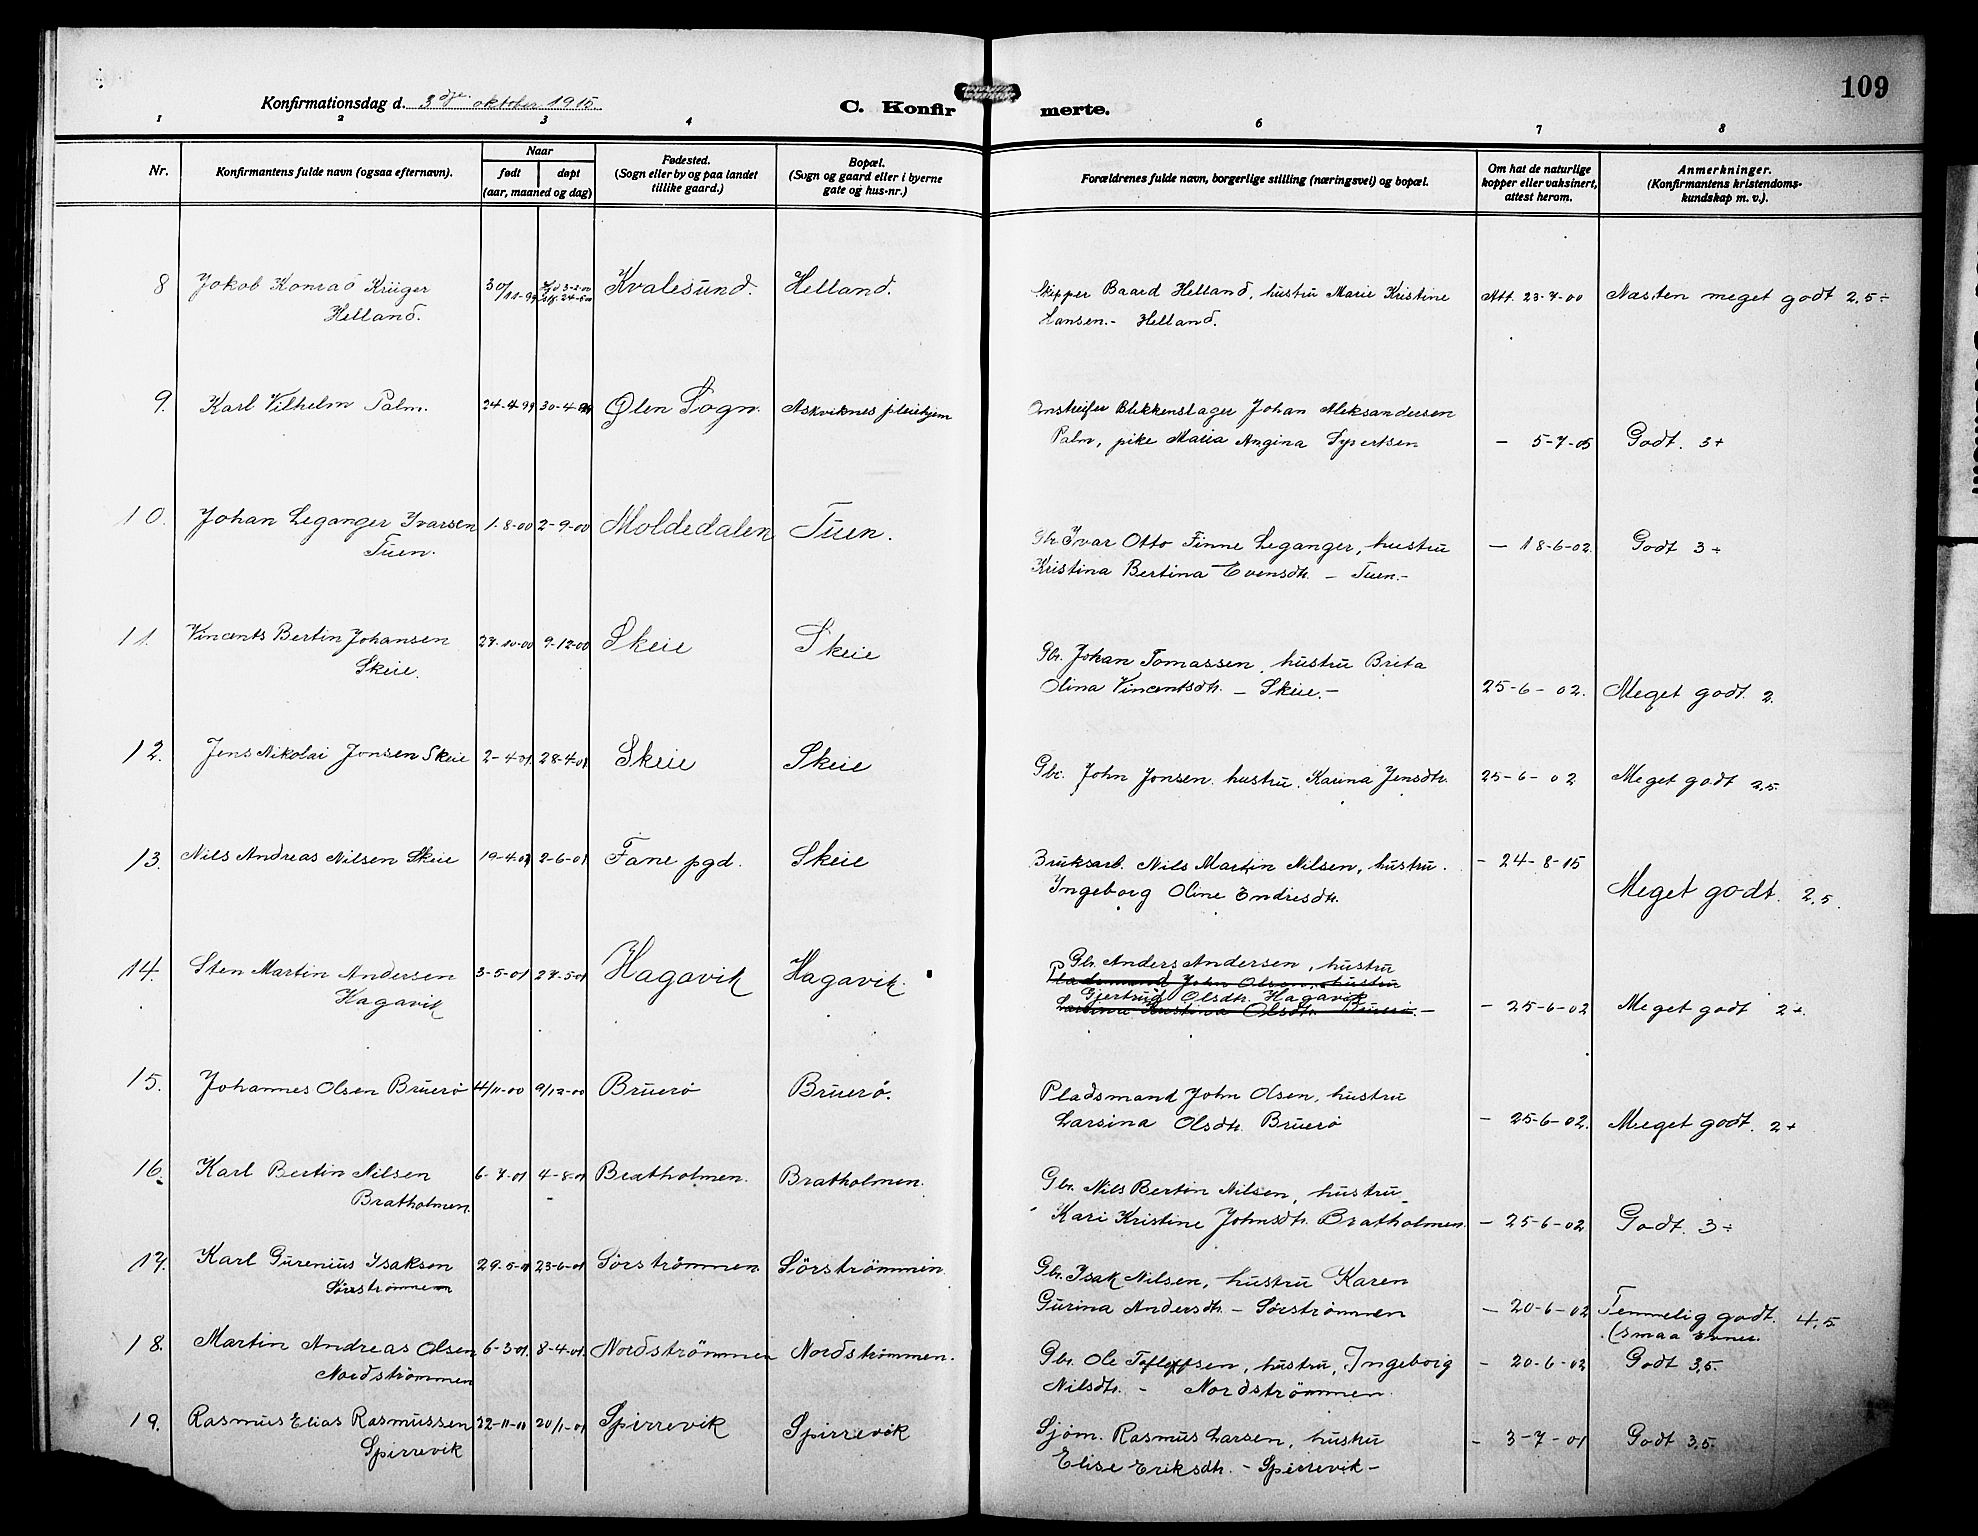 109
Konfirmationsdag d. 3dje oktober 1915.
C. Konfirmerte.
1 2 3 4 5 6 7 8
Nr.
Konfirmantens fulde navn (ogsaa efternavn).
Naar
født døpt
(aar, maaned og dag)
Fødested.
(Sogn eller by og paa landet
tillike gaard.)
Bopæl.
(Sogn og gaard eller i byerne
gate og hus-nr.)
Forældrenes fulde navn, borgerlige stilling (næringsvei) og bopæl.
Om hat de naturlige
kopper eller vaksinert,
attest herom.
Anmerkninger.
(Konfirmantens kristendoms-
kundskap m. v.).
8 Jakob Konrad Krüger 30/11-99 Kvalesund. Helland. Skipper Baard Helland, hustru Marie Kristine Att. 23-7-00 Næsten meget godt 2,5÷
Helland. Hansen.- Helland.
9. Karl Vilhelm Palm. 24-4-99 30-4-99 Ølen Sogn. Askviknes pleiehjem Omstreifer Blikkenslager Johan Aleksandersen
Palm, pike Maria Angina Syvertsen - 5-7-05 Godt. 3+
10. Johan Leganger Ivarsen 1-8-00 2-9-00 Moldedalen Tuen. Gbr Ivar Otto Finne Leganger, hustru - 18-6-02. Godt 3÷
Tuen. Kristina Bertina Evensdtr. - Tuen.-
11. Vincents Bertin Johansen 27-10-00 9-12-00 Skeie Skeie Gbr. Johan Tomassen, hustru Brita
Skeie. Olina Vincentsdtr. - Skeie.- 25-6-02. Meget godt. 2.
12. Jens Nikolai Jonsen Skeie 2-4-01. 28-4-01 Skeie Skeie Gbr. John Jonsen. hustru. Karina Jensdtr. 25-6-02 Meget godt 2,5.
13. Nils Andreas Nilsen Skeie 19-4-01 2-6-01 Fane pgd. Skeie Bruksarb. Nils Martin Nilsen, hustru. - 24-8-15
Ingeborg Oline Endresdtr. Meget godt. 2,5.
14. Sten Martin Andersen 3-5-01 27-5-01 Hagavik Hagavik. Gbr. Anders Andersen, hustru
Pladsmand John Olsen, hustru
Hagavik Gjertrud Olsdtr. Hagavik
Larsine Kristina Olsdtr. Bruerø.- - 25-6-02 Meget godt 2+.
15. Johannes Olsen Bruerö 4/11-00 9/12-00 Bruerö Bruerö. Pladsmand John Olsen, hustru
Larsina Olsdtr. Bruerö - 25-6-02. Meget godt. 2+
16. Karl Bertin Nilsen 6-7-01 4-8-01 Bratholmen. Bratholmen. Gbr. Nils Bertin Nilsen, hustru
Bratholmen. Kari Kristine Johnsdtr. Bratholmen - 25-6-02 Godt. 3÷
17. Karl Gurenius Isaksen 29-5-01 23-6-01 Sörströmmen Sörströmmen. Gbr. Isak Nilsen, hustru Karen
Sörströmmen Gurina Andersdtr. - Sörströmmen - 20-6-02 Temmelig godt. 4,5
(smaa evner.
18. Martin Andreas Olsen 6-3-01. 8-4-01. Nordströmmen Nordströmmen. Gbr. Ole Tollefsen, hustru, Ingeborg - 20-6-02 Godt 3,5.
Nordströmmen Nilsdtr. - Nordströmmen.
19. Rasmus Elias Rasmussen 22-11-00 20/1-01 Spirrevik Spirrevik Sjöm. Rasmus Larsen, hustru - 3-7-01 Godt 3,5.
Spirrevik Elise Eriksdtr. - Spirrevik -